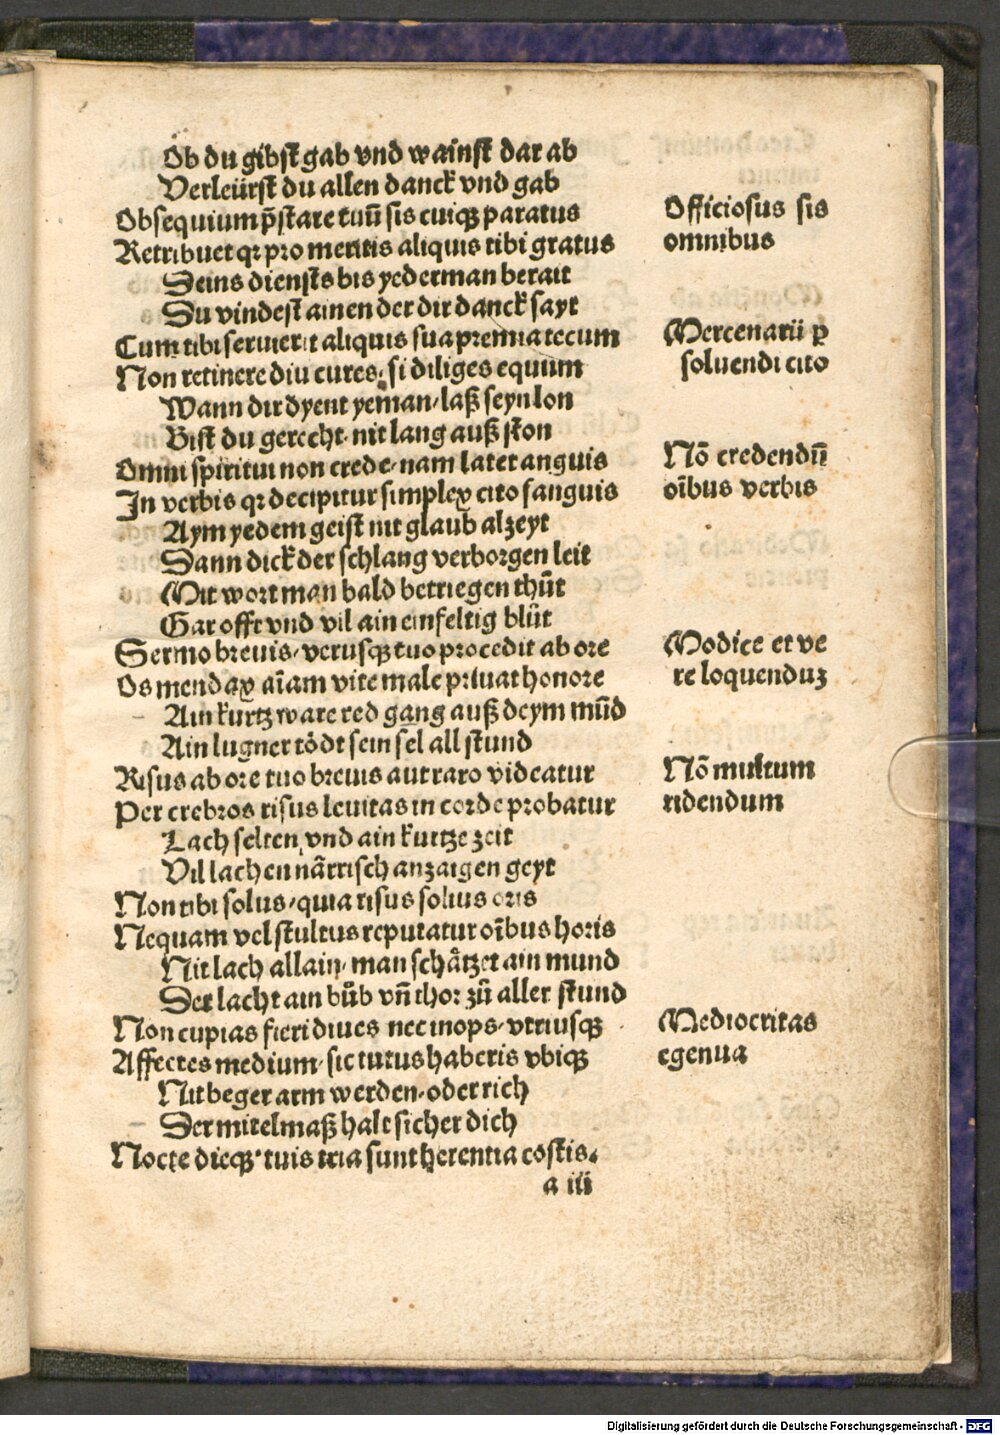 Ob du gibst gab vnd wainst dar ab
Verleürst du allen danck vnd gab
Obsequium p̄stare tuū sis cuiqȝ paratus
Retribuet qꝛ pro meritis aliquis tibi gratus
Officiosus sis
omnibus
Deins diensts bis yederman berait
Du vindest ainen der dir danck sayt
Cum tibi seruierit aliquis sua premia tecum
Non retinere diu cures, si diliges equum
Mercenarii ꝑ
soluendi cito
Wann dir dyent yeman, laß seyn lon
Bist du gerecht, nit lang auß ston
Omni spiritui non crede, nam latet anguis
In verbis qꝛ decipitur simplex cito sanguis
Nō credendū
oībus verbis
Aym yedem geist nit glaub alzeyt
Dann dick der schlang verborgen leit
Mit wort man bald betriegen thůt
Gar offt vnd vil ain einfeltig blůt
Sermo breuis, verusqȝ tuo procedit ab ore
Os mendax aīam vite male priuat honore
Modice et ve
re loquenduȝ
Ain kurtz ware red gang auß deym mūd
Ain lugner tödt sein sel all stund
Risus ab ore tuo breuis aut raro videatur
Per crebros risus leuitas in corde probatur
Nō multum
ridendum
Lach selten, vnd ain kurtze zeit
Vil lachen närrisch anzaigen geyt
Non tibi solus, quia risus solius oris
Nequam vel stultus reputatur oībus horis
Nit lach allain, man schätzet ain mund
Der lacht ain bůb vñ thor zů aller stund
Non cupias fieri diues nec inops, vtriusqȝ
Affectes medium, sic tutus haberis vbiqȝ
Mediocritas
egenua
Nit beger arm werden, oder rich
Der mitelmaß halt sicher dich
Nocte dieqȝ tuis tria sunt herentia costis.
a iii
Digitalisierung gefördert durch die Deutsche Forschungsgemeinschaft - DFG